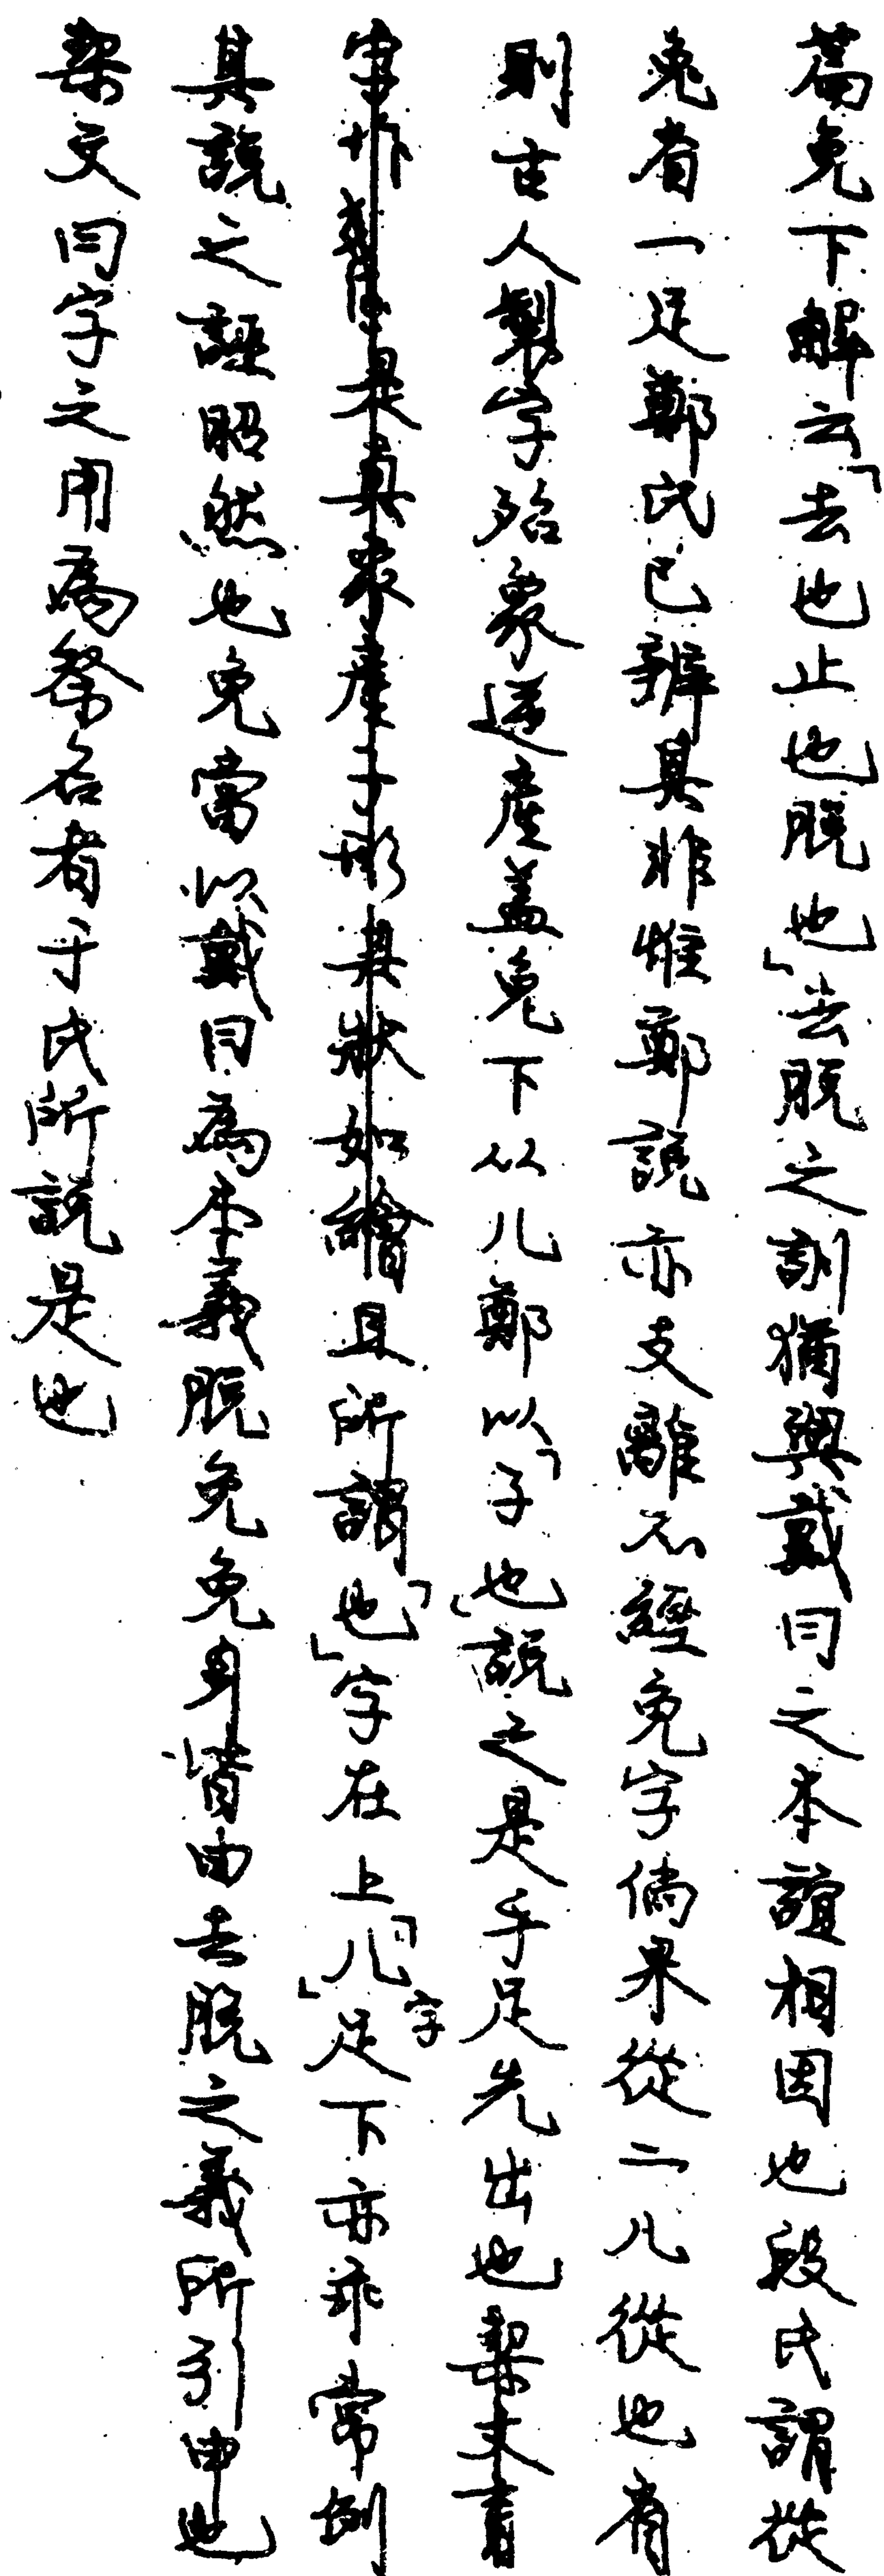 篇免下解云「去也止也脫也」去脫之訓猶與戴冃之本誼相因也段氏謂從
兔省一足鄭氏已辨其非惟鄭說亦支離不經免字倘果從二儿從也有
則古人製字殆象逆產蓋免下从儿鄭以「子也」說之是手足先出也栔文育
字作是真象產子形其狀如繪且所謂「也」字在上「儿」字足下亦乖常例
其說之誣昭然也免當以戴冃為本義脫免免身皆由去脫之義所引申也
栔文冃字之用為祭名者于氏所說是也